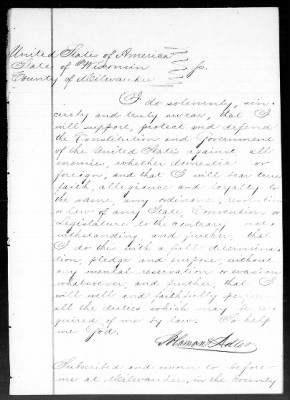 United States of America
State of Wisconsin
County of Milwaukee
} ss.
I do solemnly, sin-
cerely and truly swear, that I
will support, protect and defend
the Constitution and Government
of the United States against all
enemies, whether domestic or
foreign, and that I will bear true
faith, allegiance and loyalty to
the same, any ordinance, resolution
or law of any State, Convention or
Legislature to the contrary not-
withstanding and further, that
I do this with a full determina-
tion, pledge and purpose, without
any mental reservation or evasion
whatsoever, and further, that I
will well and faithfully perform
all the duties which may be re-
quired of me by law. So help
me God.
Adler
Subscribed and sworn to before
me at Milwaukee, in the County